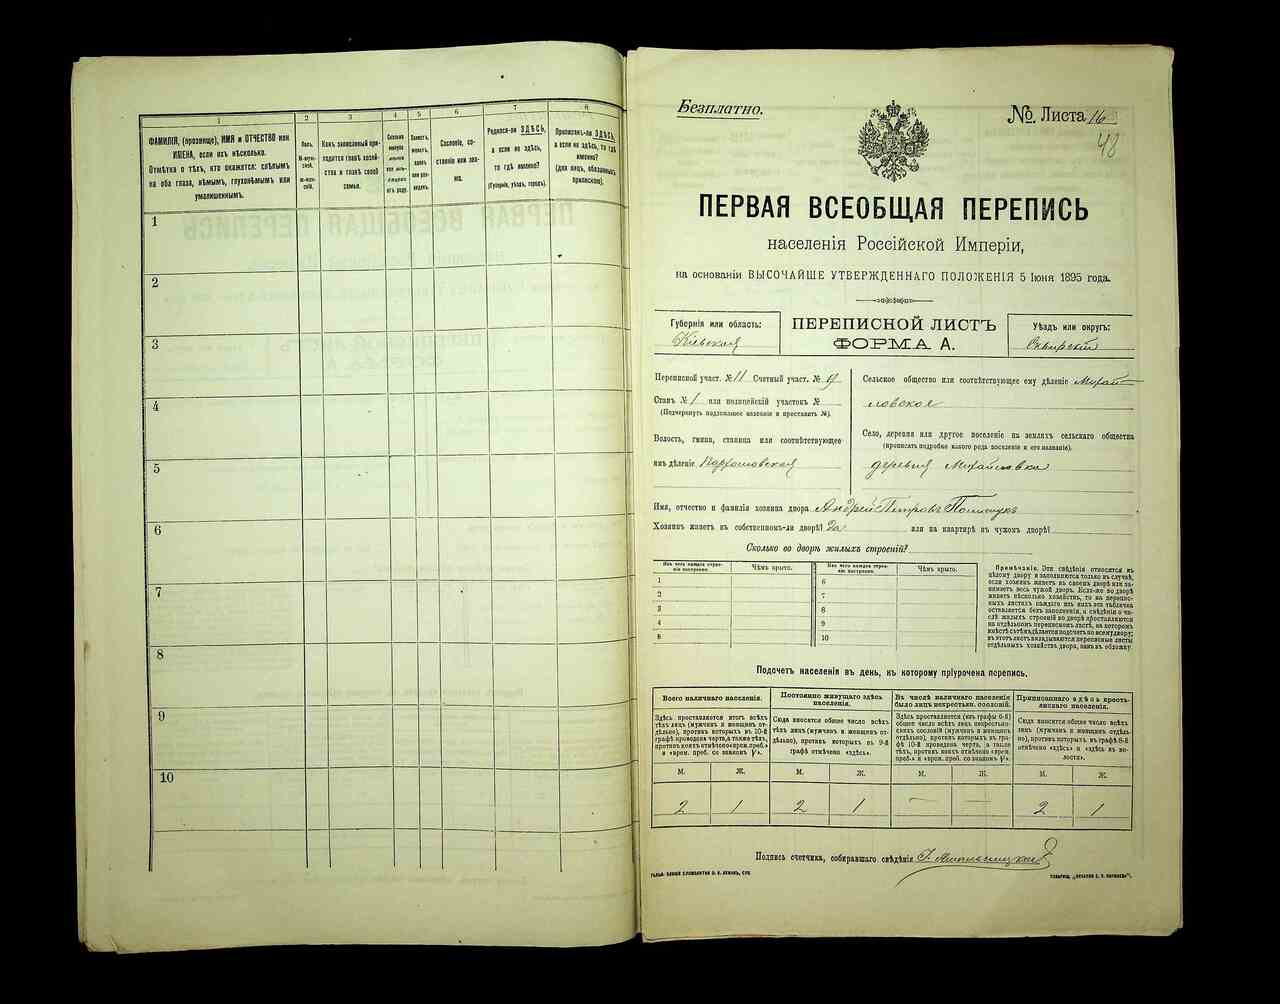 1
2
3
4
5
6
7
8
ФАМИЛІЯ, (прозвище), ИМЯ и ОТЧЕСТВО или
ИМЕНА, если ихъ нѣсколько.
Отмѣтка о тѣхъ, кто окажется: слѣпымъ
на оба глаза, нѣмымъ, глухонѣмымъ или
умалишеннымъ.
Полъ.
М-муж-
ской.
Ж-жен-
скій.
Какъ записанный при-
ходится главѣ хозяй-
ства и главѣ своей
семьи.
Сколько
минуло
лѣтъ
Холостъ,
женатъ,
вдовъ
или раз-
веденъ.
Сословіе, со-
стояніе или зва-
ніе.
Родился-ли ЗДѢСЬ,
а если не здѣсь,
то гдѣ именно?
(Губернія, уѣздъ, городъ).
Приписанъ-ли ЗДѢСЬ,
а если не здѣсь, то гдѣ
именно?
(для лицъ, обязанныхъ
припискою).
1
2
3
4
5
6
7
8
9
10
Безплатно.
№ Листа 16
48
ПЕРВАЯ ВСЕОБЩАЯ ПЕРЕПИСЬ
населенія Россійской Имперіи,
на основаніи ВЫСОЧАЙШЕ УТВЕРЖДЕННАГО ПОЛОЖЕНІЯ 5 Іюня 1895 года.
Губернія или область:
Кіевская
ПЕРЕПИСНОЙ ЛИСТЪ
ФОРМА А.
Уѣздъ или округъ:
Сквирскій
Переписной участ. № 11 Счетный участ. №
Станъ № 1 или полицейскій участокъ №
(Подчеркнуть надлежащее названіе и проставить №).
Волость, гмина, станица или соотвѣтствующее
имъ дѣленіе Пархомовская
Сельское общество или соотвѣтствующее ему дѣленіе Михай-
ловское
Село, деревня или другое поселеніе на земляхъ сельскаго общества
(прописать подробно какого рода поселеніе и его названіе).
деревня Михайловка
Имя, отчество и фамилія хозяина двора Андрей Петровъ Полищукъ
Хозяинъ живетъ въ собственномъ-ли дворѣ? Да или на квартирѣ въ чужомъ дворѣ?
Сколько во дворѣ жилыхъ строеній?
Изъ чего каждое строе-
ніе построено.
Чѣмъ крыто.
Изъ чего каждое строе-
ніе построено.
Чѣмъ крыто.
1
2
3
4
5
6
7
8
9
10
Примѣчаніе. Эти свѣдѣнія относятся къ
цѣлому двору и заполняются только въ случаѣ,
если хозяинъ живетъ въ своемъ дворѣ или за-
нимаетъ весь чужой дворъ. Если-же во дворѣ
живетъ нѣсколько хозяйствъ, то на перепис-
ныхъ листахъ каждаго изъ нихъ эта табличка
оставляется безъ заполненія, а свѣдѣнія о чи-
слѣ жилыхъ строеній во дворѣ проставляются
на отдѣльномъ переписномъ листѣ, на которомъ
вмѣстѣ съ тѣмъ дѣлается подсчетъ по всему двору;
въ этотъ листъ вкладываются переписные листы
отдѣльныхъ хозяйствъ двора, какъ въ обложку.
Подсчетъ населенія въ день, къ которому пріурочена перепись.
Всего наличнаго населенія.
Постоянно живущаго здѣсь
населенія.
Въ числѣ наличнаго населенія
было лицъ некрестьян. сословій.
Приписаннаго здѣсь кресть-
янскаго населенія.
Здѣсь проставляется итогъ всѣхъ
тѣхъ лицъ (мужчинъ и женщинъ от-
дѣльно), противъ которыхъ въ 10-й
графѣ проведена черта, а также тѣхъ,
противъ коихъ отмѣчено «врем. преб.»
и «врем. преб. со знакомъ V».
Сюда вносится общее число всѣхъ
тѣхъ лицъ (мужчинъ и женщинъ от-
дѣльно), противъ которыхъ въ 9-й
графѣ отмѣчено «здѣсь».
Здѣсь проставляется (изъ графы 6-й)
общее число всѣхъ лицъ некрестьян-
скихъ сословій (мужчинъ и женщинъ
отдѣльно), противъ которыхъ въ гра-
фѣ 10-й проведена черта, а также
тѣхъ, противъ коихъ отмѣчено «врем.
преб.» и «врем. преб. со знакомъ V».
Сюда вносится общее число всѣхъ
тѣхъ лицъ (мужчинъ и женщинъ отдѣль-
но), противъ которыхъ въ графѣ 8-й
отмѣчено «здѣсь» и «здѣсь въ во-
лости».
М. Ж. М. Ж. М. Ж. М. Ж.
2 1 2 1 — — 2 1
Подпись счетчика, собиравшаго свѣдѣнія